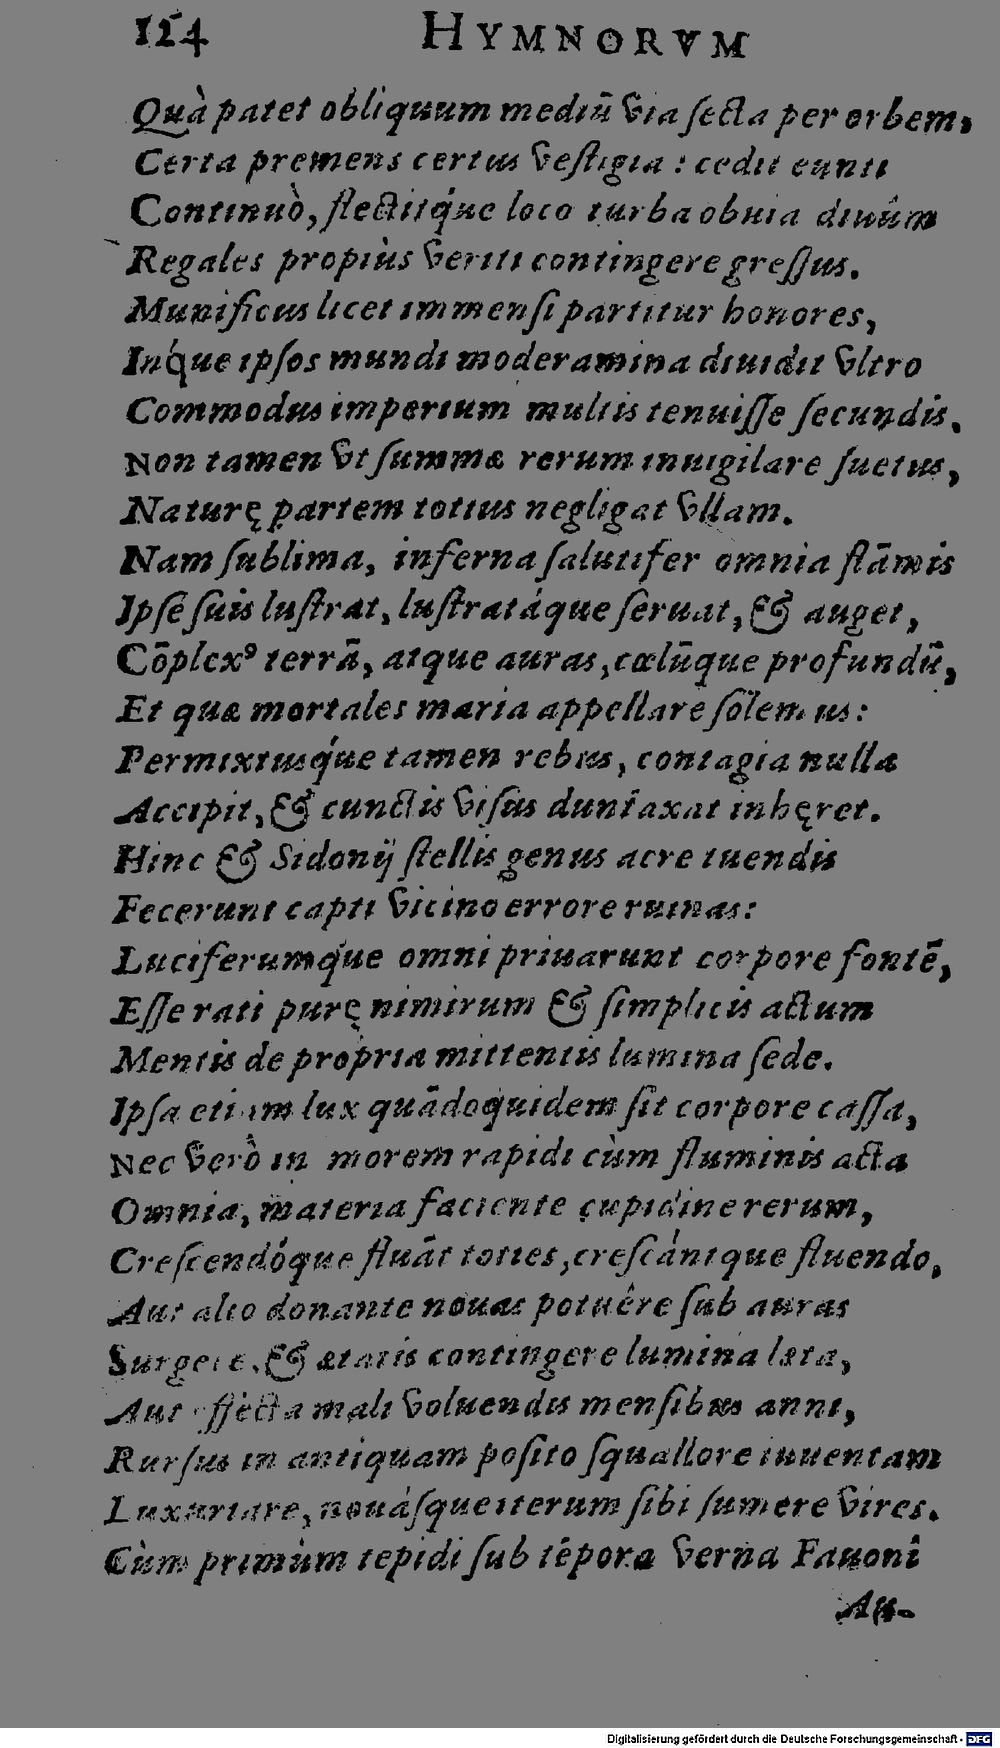 124 HYMNORVM
Quà patet obliquum mediū via ſecta per orbem,
Certa premens certus veſtigia : cedit eunti
Continuò, flectitq́ue loco turba obuia diuûm
Regales propiùs veriti contingere greſſus.
Munificus licet immenſi partitur honores,
Inq́ue ipſos mundi moderamina diuidit vltro
Commodus imperium multis tenuiſſe ſecundis.
Non tamen vt ſummæ rerum inuigilare ſuetus,
Naturę partem totius negligat vllam.
Nam ſublima, inferna ſalutifer omnia flāmis
Ipſe ſuis luſtrat, luſtratáque ſeruat, & auget,
Cōplexꝰ terrā, atque auras, cœlūque profundū,
Et quæ mortales maria appellare ſolemus:
Permixtusq́ue tamen rebus, contagia nulla
Accipit, & cunctis viſus duntaxat inhęret.
Hinc & Sidonij ſtellis genus acre tuendis
Fecerunt capti vicino errore ruinas:
Luciferumq́ue omni priuarunt corpore fontē,
Eſſe rati purę nimirum & ſimplicis actum
Mentis de propria mittentis lumina ſede.
Ipſa etiam lux quādoquidem ſit corpore caſſa,
Nec verò in morem rapidi cùm fluminis acta
Omnia, materia faciente cupidine rerum,
Creſcendóque fluāt toties, creſcántque fluendo,
Aut alto donante nouas potuêre ſub auras
Surgere, & ætatis contingere lumina læta,
Aut effecta mali voluendis menſibus anni,
Rurſus in antiquam poſito ſquallore iuuentam
Luxuriare, nouáſque iterum ſibi ſumere vires.
Cùm primùm tepidi ſub tēpora verna Fauonî
Au-
Digitalisierung gefördert durch die Deutsche Forschungsgemeinschaft - DFG